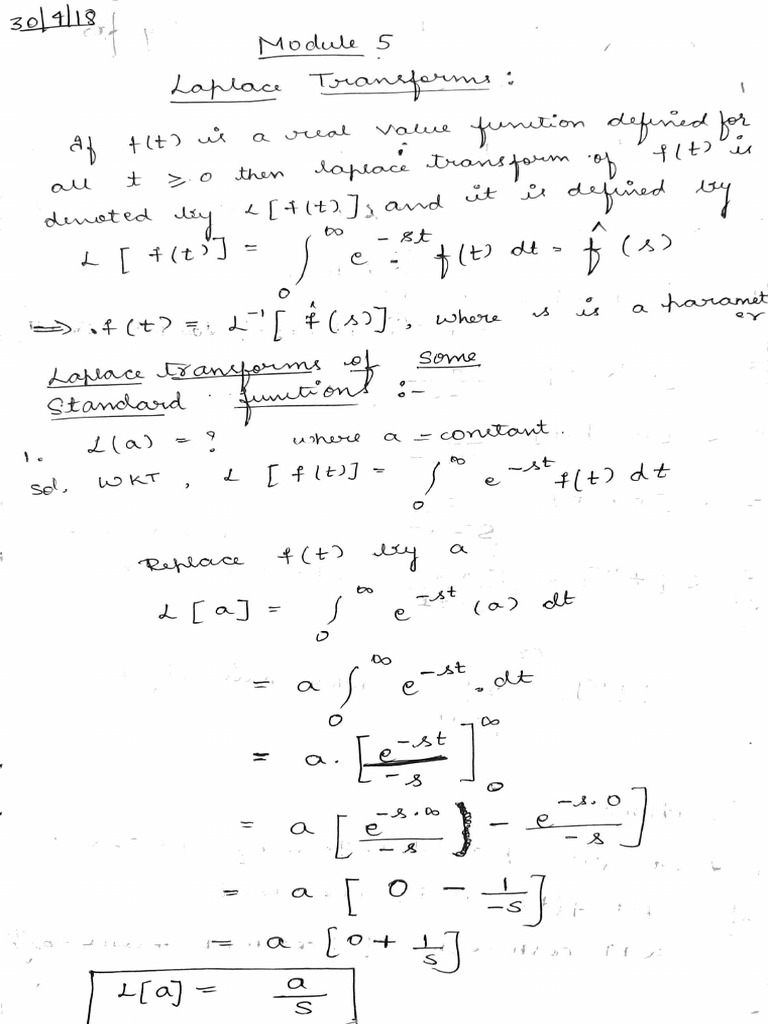 30/4/18
Module 5
Laplace Transforms :
If f(t) is a real value function defined for
all t ≥ 0 then laplace transform of f(t) is
denoted by L[f(t)], and it is defined by
L[f(t)] = ∫₀^∞ e^{-st} f(t) dt = f̂(s)
⇒ f(t) = L⁻¹[f̂(s)], where s is a parameter
Laplace transforms of some
Standard functions :-
1. L(a) = ? where a = constant.
Sol. WKT, L[f(t)] = ∫₀^∞ e^{-st} f(t) dt
Replace f(t) by a
L[a] = ∫₀^∞ e^{-st} (a) dt
= a ∫₀^∞ e^{-st} . dt
= a . [e^{-st}/-s]₀^∞
= a [e^{-s.∞}/-s - e^{-s.0}/-s]
= a [0 - 1/-s]
= a [0 + 1/s]
L[a] = a/s